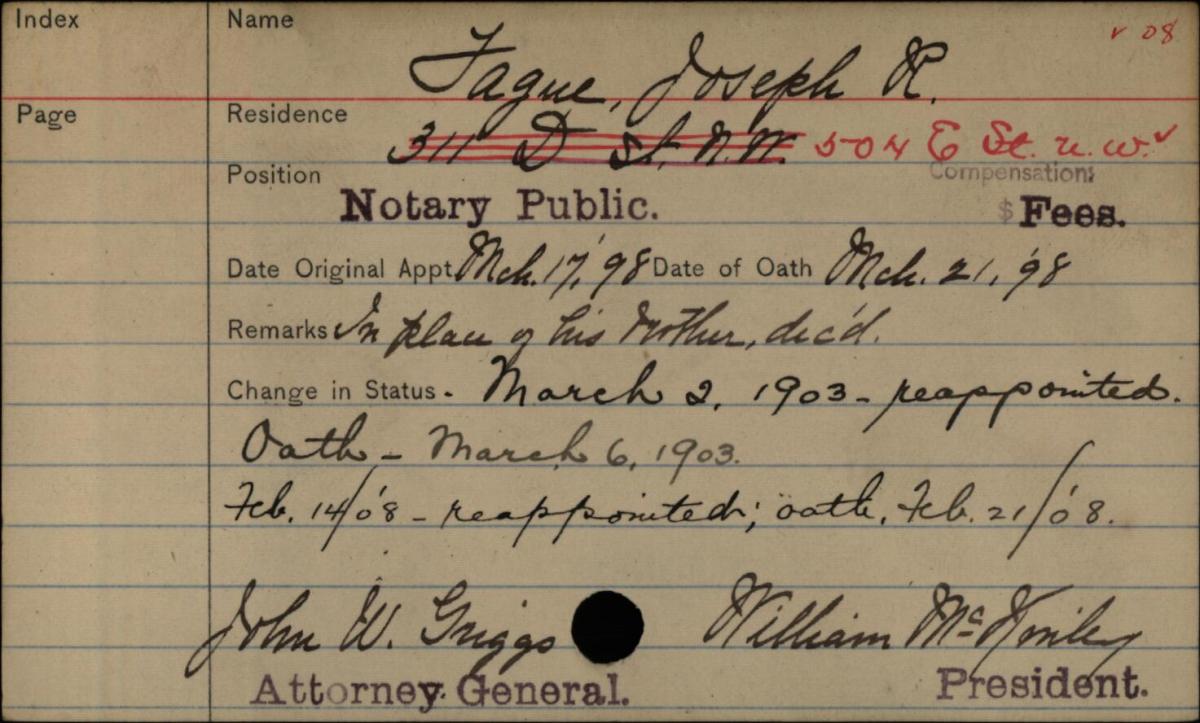 Index Name v 08
Fague, Joseph R.
Page Residence
311 D St. N.W. 504 E St. n.w. v
Position Compensation:
Notary Public. $ Fees.
Date Original Appt. Mch. 17, '98 Date of Oath Mch. 21, '98
Remarks In place of his Mother, dec'd.
Change in Status. March 2, 1903 - reappointed.
Oath - March 6, 1903.
Feb. 14/'08 - reappointed; oath, Feb. 21/'08.
John W. Griggs William McKinley
Attorney General. President.